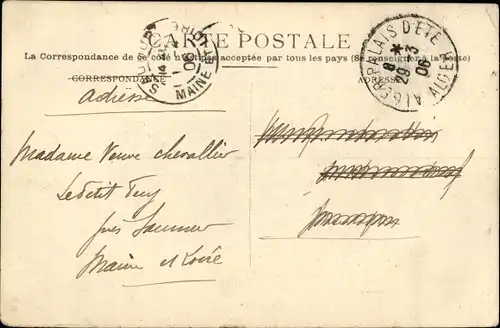 CARTE POSTALE
La Correspondance de ce côté n'est pas acceptée par tous les pays (Se renseigner à la poste)
CORRESPONDANCE
ADRESSE
SAUMUR
MAINE-ET-LOIRE
ALGER PALAIS D'ÉTÉ
8
29 -3
06
ALGER
adresse
Madame Veuve Chevallier
Le Petit Puy
près Saumur
Maine et Loire